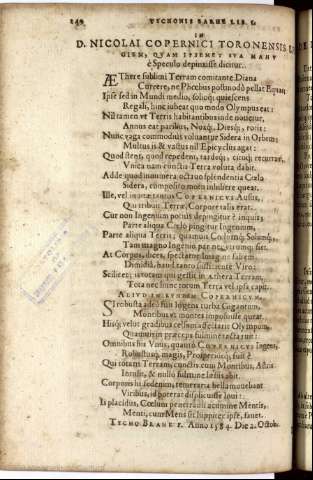 240 TYCHONIS BRAHE LIB. I.
IN
D. NICOLAI COPERNICI TORONENSIS
GIEM, QVAM IPSEMET SVA MANV
è Speculo depinxisse dicitur.
ÆThere sublimi Terram comitante Diana
Currere, ne Phœbus postmodò pellat Equos;
Ipse sed in Mundi medio, solioq; quiescens
Regali, hinc iubeat quo modo Olympus eat:
Nil tamen ut Terris habitantibus inde
Annus eat paribus, Noxq;, Diesq;, rotis:
Nunc vaga commodius voluantur Sidera in Orbem;
Multus is & vastus nil Epicyclus agat:
Quod stent, quod repedent, tardeq;, citoq; recurrant,
Vnica nam cunctis Terra voluta dabit.
Adde quod innumera octaui splendentia Cœla
Sidera, composito
Ille, vel in tantum COPERNICVS Ausus,
Quiribus Terræ Corpore talis erat.
Cur non Ingenium potius depingitur è inquis;
Parte aliqua Cœlo pingitur Ingenium,
Parte aliqua Terris; quamuis Solumq;
Tam magno Ingenio par nec vtrumq; siet.
At Corpus, dices, spectatur Imagine saltem
Dimidiâ, haud tanto Viro;
Scilicet; is totam qui gessit in æthera Terram,
Tota nec hunc totum Terra vel ipsa capit.
ALIVD IN EVNDEM COPERNICVM.
SI robusta adeò fuit Ingens turba Gigantum,
Montibus vt montes imposuisse queat.
Hisq; velut gradibus celsum Olympum,
Quamuis in præceps fulmine tacta ruit:
Omnibus his Vnus, quantò COPERNICVS Ingens,
Robustusq; magis, Prosperiorq; fuit è
Qui totam Terram, cunctis cum Montibus, Astris
Intulit, & nullo fulmine læsus abit.
Corporis hi sedenim, temeraria bella mouebant
Viribus, id poterat displicuisse Ioui:
Is placidus, Cœlum penetrauit acumine Mentis,
Menti, cum Mens sit Iuppiter ipse, fauet.
TYCHO BRAHE F. Anno 1584. Die 2. Octob.